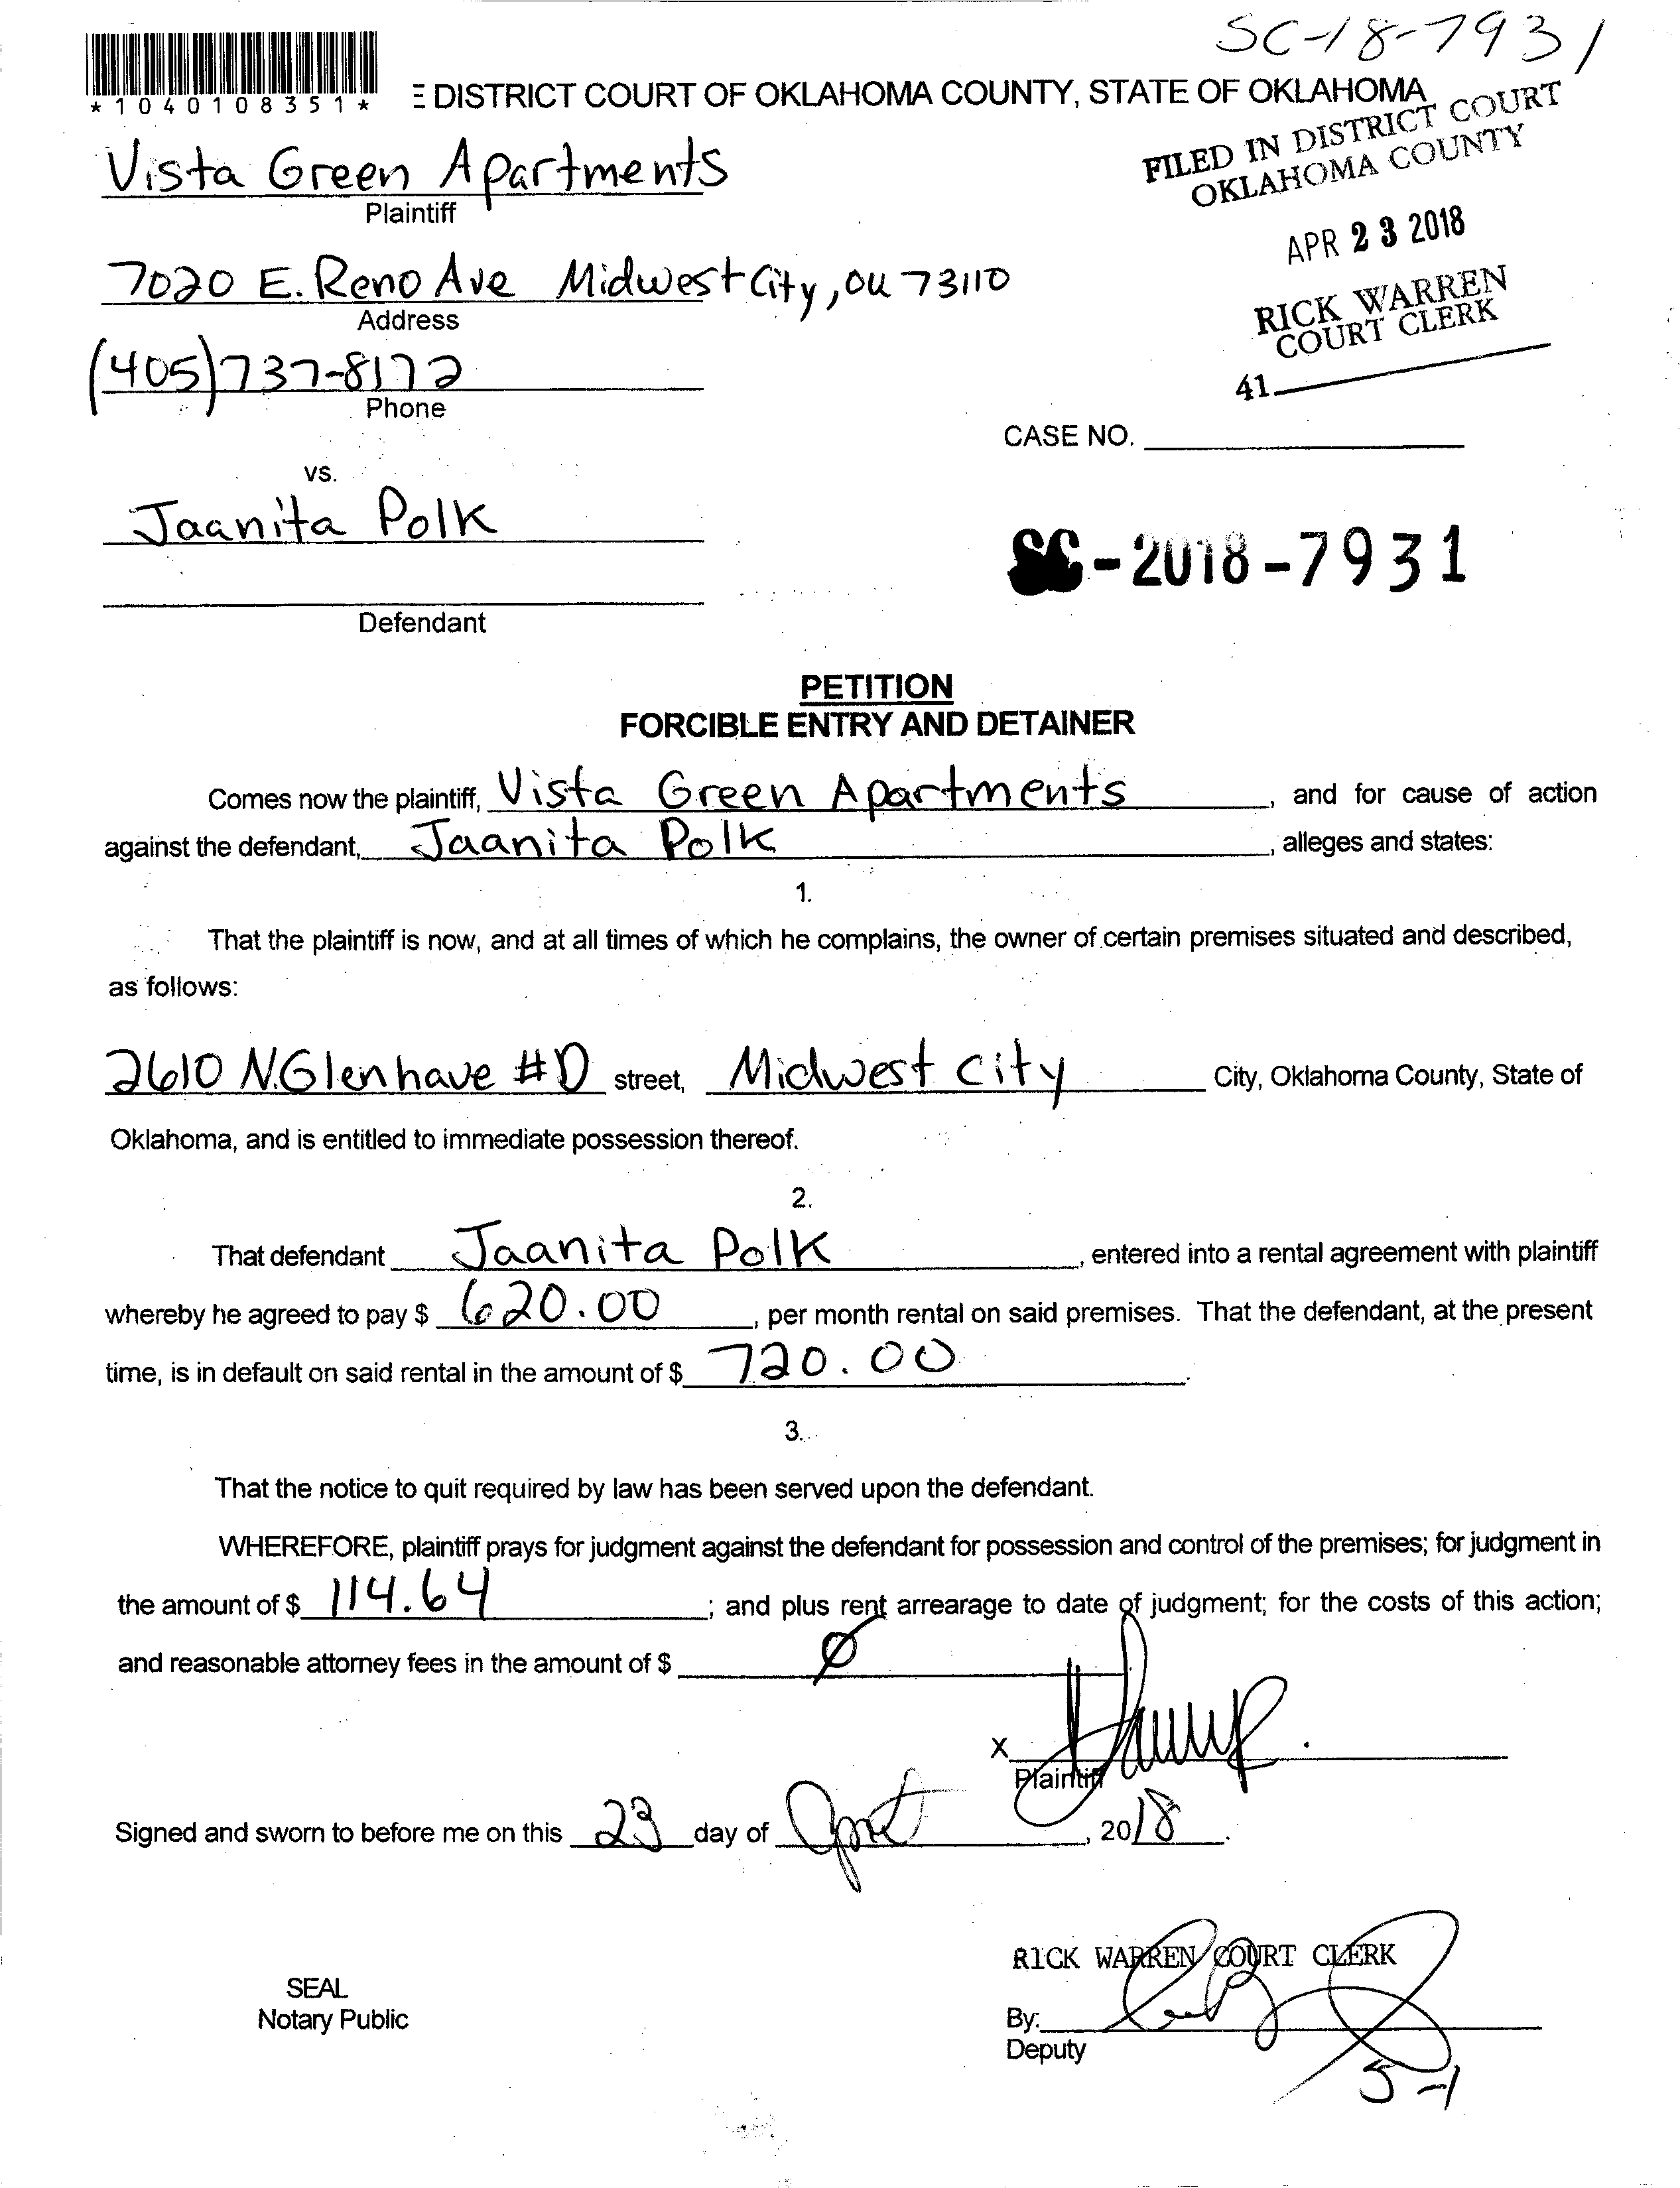 SC-18-7931
*1040108351*
DISTRICT COURT OF OKLAHOMA COUNTY, STATE OF OKLAHOMA
FILED IN DISTRICT COURT
OKLAHOMA COUNTY
Vista Green Apartments
Plaintiff
APR 23 2018
7020 E. Reno Ave Midwest City, OK 73110
Address
RICK WARREN
COURT CLERK
(405)737-8172
Phone
41
CASE NO.
vs.
Jaanita Polk
SC-2018-7931
Defendant
PETITION
FORCIBLE ENTRY AND DETAINER
Comes now the plaintiff, Vista Green Apartments, and for cause of action
against the defendant, Jaanita Polk, alleges and states:
1.
That the plaintiff is now, and at all times of which he complains, the owner of certain premises situated and described,
as follows:
2610 N.Glenhave #D street, Midwest City City, Oklahoma County, State of
Oklahoma, and is entitled to immediate possession thereof.
2.
That defendant Jaanita Polk, entered into a rental agreement with plaintiff
whereby he agreed to pay $ 620.00, per month rental on said premises. That the defendant, at the present
time, is in default on said rental in the amount of $ 720.00.
3.
That the notice to quit required by law has been served upon the defendant.
WHEREFORE, plaintiff prays for judgment against the defendant for possession and control of the premises; for judgment in
the amount of $ 114.64; and plus rent arrearage to date of judgment; for the costs of this action;
and reasonable attorney fees in the amount of $ Ø
X
Plaintiff
Signed and sworn to before me on this 23 day of April, 2018.
RICK WARREN COURT CLERK
SEAL
Notary Public
By:
Deputy
5-1